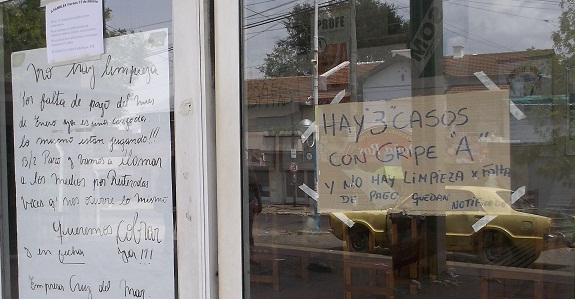 no hay limpieza
Por falta de pago del mes
de Enero que es una cargada
lo mismo estan jugando!!!
B/2 Paro y Vamos a llamar
a los medios por Reiteradas
veces que nos ocurre lo mismo
Queremos Cobrar
y en fecha ya!!!
Empresa Cruz del Mar
HAY "3" CASOS
CON GRIPE "A"
Y NO HAY LIMPIEZA X FALTA
DE PAGO QUEDAN NOTIFIC